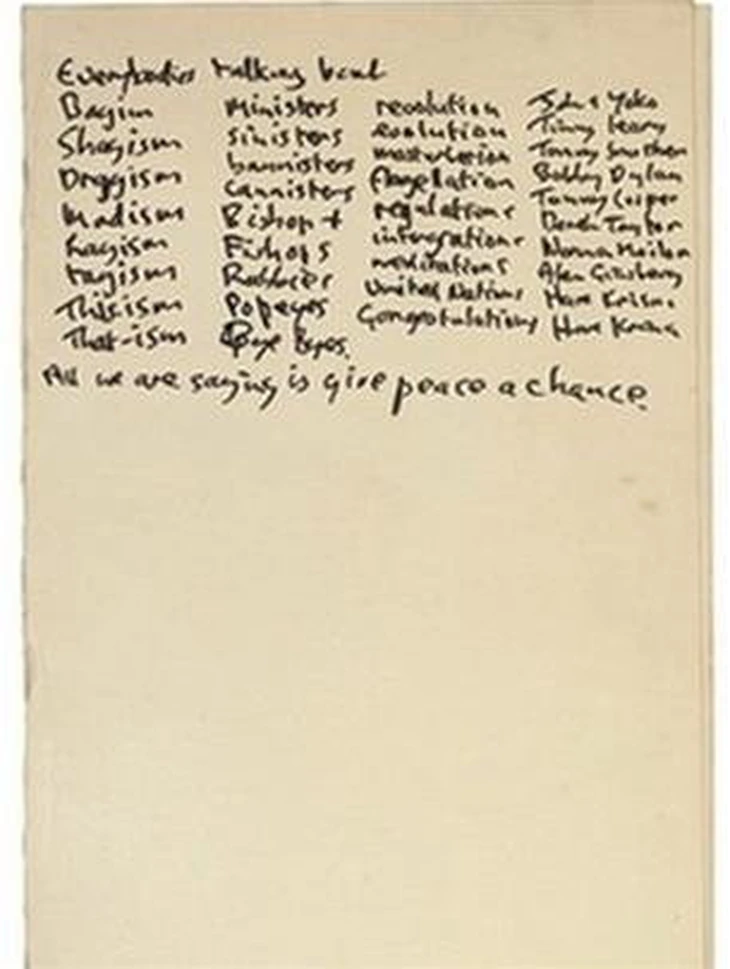 Everybodies talking bout
Bagism
Shagism
Draggism
Madism
Ragism
Tagism
Thisism
That-ism
Ministers
Sinisters
bannisters
Cannisters
Bishop +
Fishops
Rabbies
Popeyes
Bye Byes.
revolution
evolution
masturbation
flagelation
regulations
intergrations
meditations
United Nations
Congratulations
John & Yoko
Timmy Leary
Tommy Smothers
Bobby Dylan
Tommy Cooper
Derek Taylor
Norman Mailer
Alan Ginsberg
Hare Krisna
Hare Krisna
All we are saying is give peace a chance.